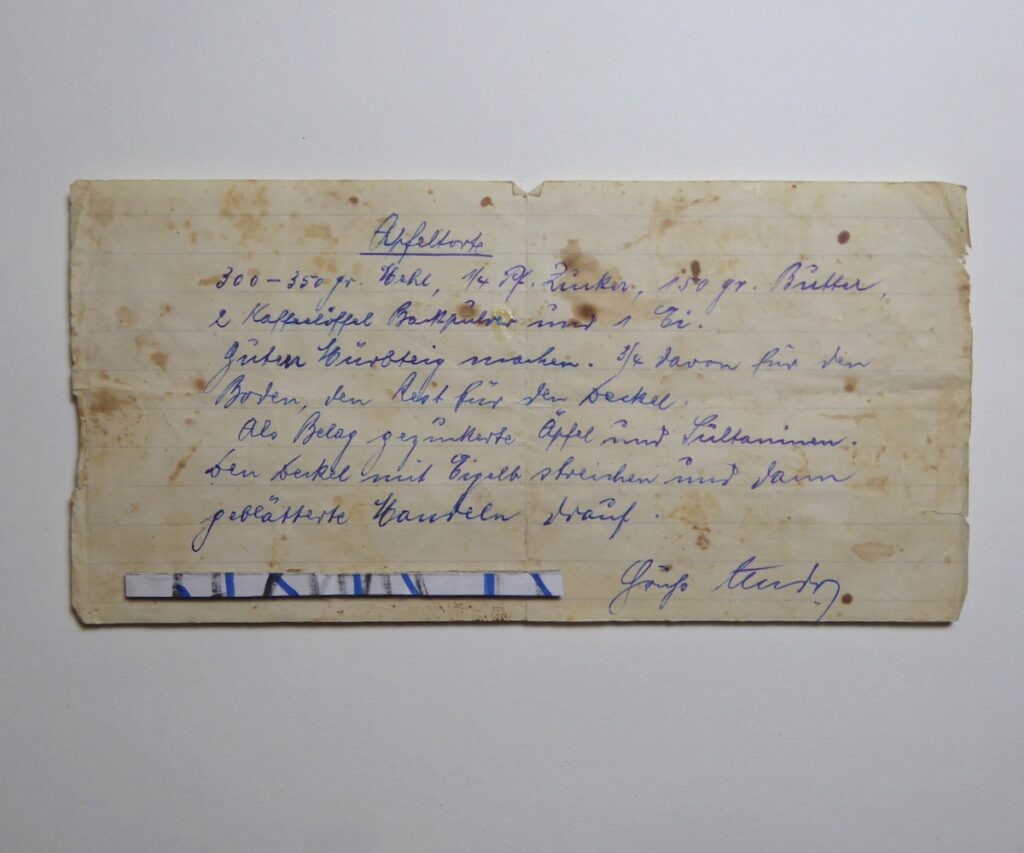 Apfeltorte
300–350 gr. Mehl, 1/4 Pf. Zucker, 150 gr. Butter,
2 Kaffeelöffel Backpulver und 1 Ei.
Guten Mürbteig machen. 3/4 davon für den
Boden, den Rest für den Deckel.
Als Belag gezuckerte Äpfel und Sultaninen.
Den Deckel mit Eigelb streichen und dann
geblätterte Mandeln drauf.
Gruß